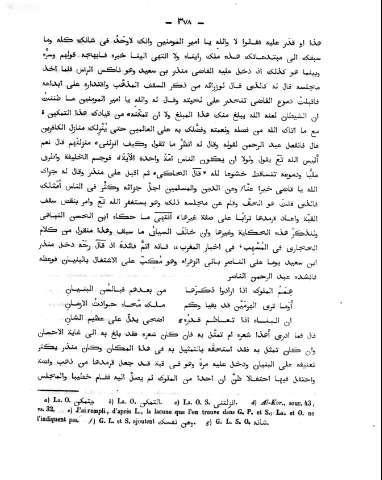 — ٣٧٨ —
هذا او قدر عليه فقالوا لا والله يا امير المومنين وانك لاوحد فى شانك كله وما
سبقك الى مبتدعاتك هذه ملك رايناه ولا انتهى الينا خبره فابهجه قولهم وسره
وبينما هو كذلك اذ دخل عليه القاضى منذر بن سعيد وهو ناكس الراس فلما اخذ
مجلسه قال له كالذى قال لوزرائه من ذكر السقف المذهب واقتداره على ابداعه
فاقبلت دموع القاضى تنحدر على لحيته وقال له والله يا امير المومنين ما ظننت
ان الشيطان لعنه الله يبلغ منك هذا المبلغ ولا ان تمكنه من قيادك هذا التمكين
مع ما اتاك الله من فضله ونعمته وفضلك به على العالمين حتى ينزلك منازل الكافرين
قال فانفعل عبد الرحمن لقوله وقال له انظر ما تقول وكيف انزلنى منزلتهم قال نعم
اليس الله تع يقول ولولا ان يكون الناس امة واحدة الآية فوجم الخليفة واطرق
مليا ودموعه تتساقط خشوعا لله ثم اقبل على منذر وقال له جزاك
الله يا قاضى خيرا عنا وعن الدين والمسلمين اجل جزائه وكثر فى الناس امثالك
فالذى قلت هو الحق وقام عن مجلسه ذلك وهو يستغفر الله تع وامر بنقض سقف
القبة واعاد قرمدها ترابا على صفة غيرها انتهى ما حكاه ابن الحسن النباهى
ولنذكر هذه الحكاية وغيرها وان خالف السياق ما سبق وهذا منقول من كلام
الحجارى فى المسهب فى اخبار المغرب فانه اتم فائدة اذ قال رحه دخل منذر
ابن سعيد يوما على الناصر بانى الزهراء وهو مكب على الاشتغال بالبنيان فوعظه
فانشده عبد الرحمن الناصر
همم الملوك اذا ارادوا ذكرها من بعدهم فبالسن البنيان
أوما ترى الهرمين قد بقيا وكم ملك محاه حوادث الازمان
ان البناء اذا تعاظم قدره اضحى يدل على عظيم الشان
قال فما ادرى اهذا شعره ام تمثل به فان كان شعره فقد بلغ به الى غاية الاحسان
وان كان تمثل به فقد استحقه بالتمثيل به فى هذا المكان وكان منذر يكثر
تعنيفه على البنيان ودخل عليه مرة وهو فى قبة قد جعل قرمدها من ذهب وفضة
واحتفل فيها احتفالا ظن ان احدا من الملوك لم يصل اليه فقام خطيبا والمجلس
a) La. O. يتمكن. b) La. O. التمكن. c) La. O. S. انزلتنى. d) Al-Kor., sour. 43,
vs. 32. e) J'ai rempli, d'après L., la lacune que l'on trouve dans G. P. et S.; La. et O. ne
l'indiquent pas. f) G. L. et S. ajoutent وعن نفسك. g) G. L. S. O. شانه.